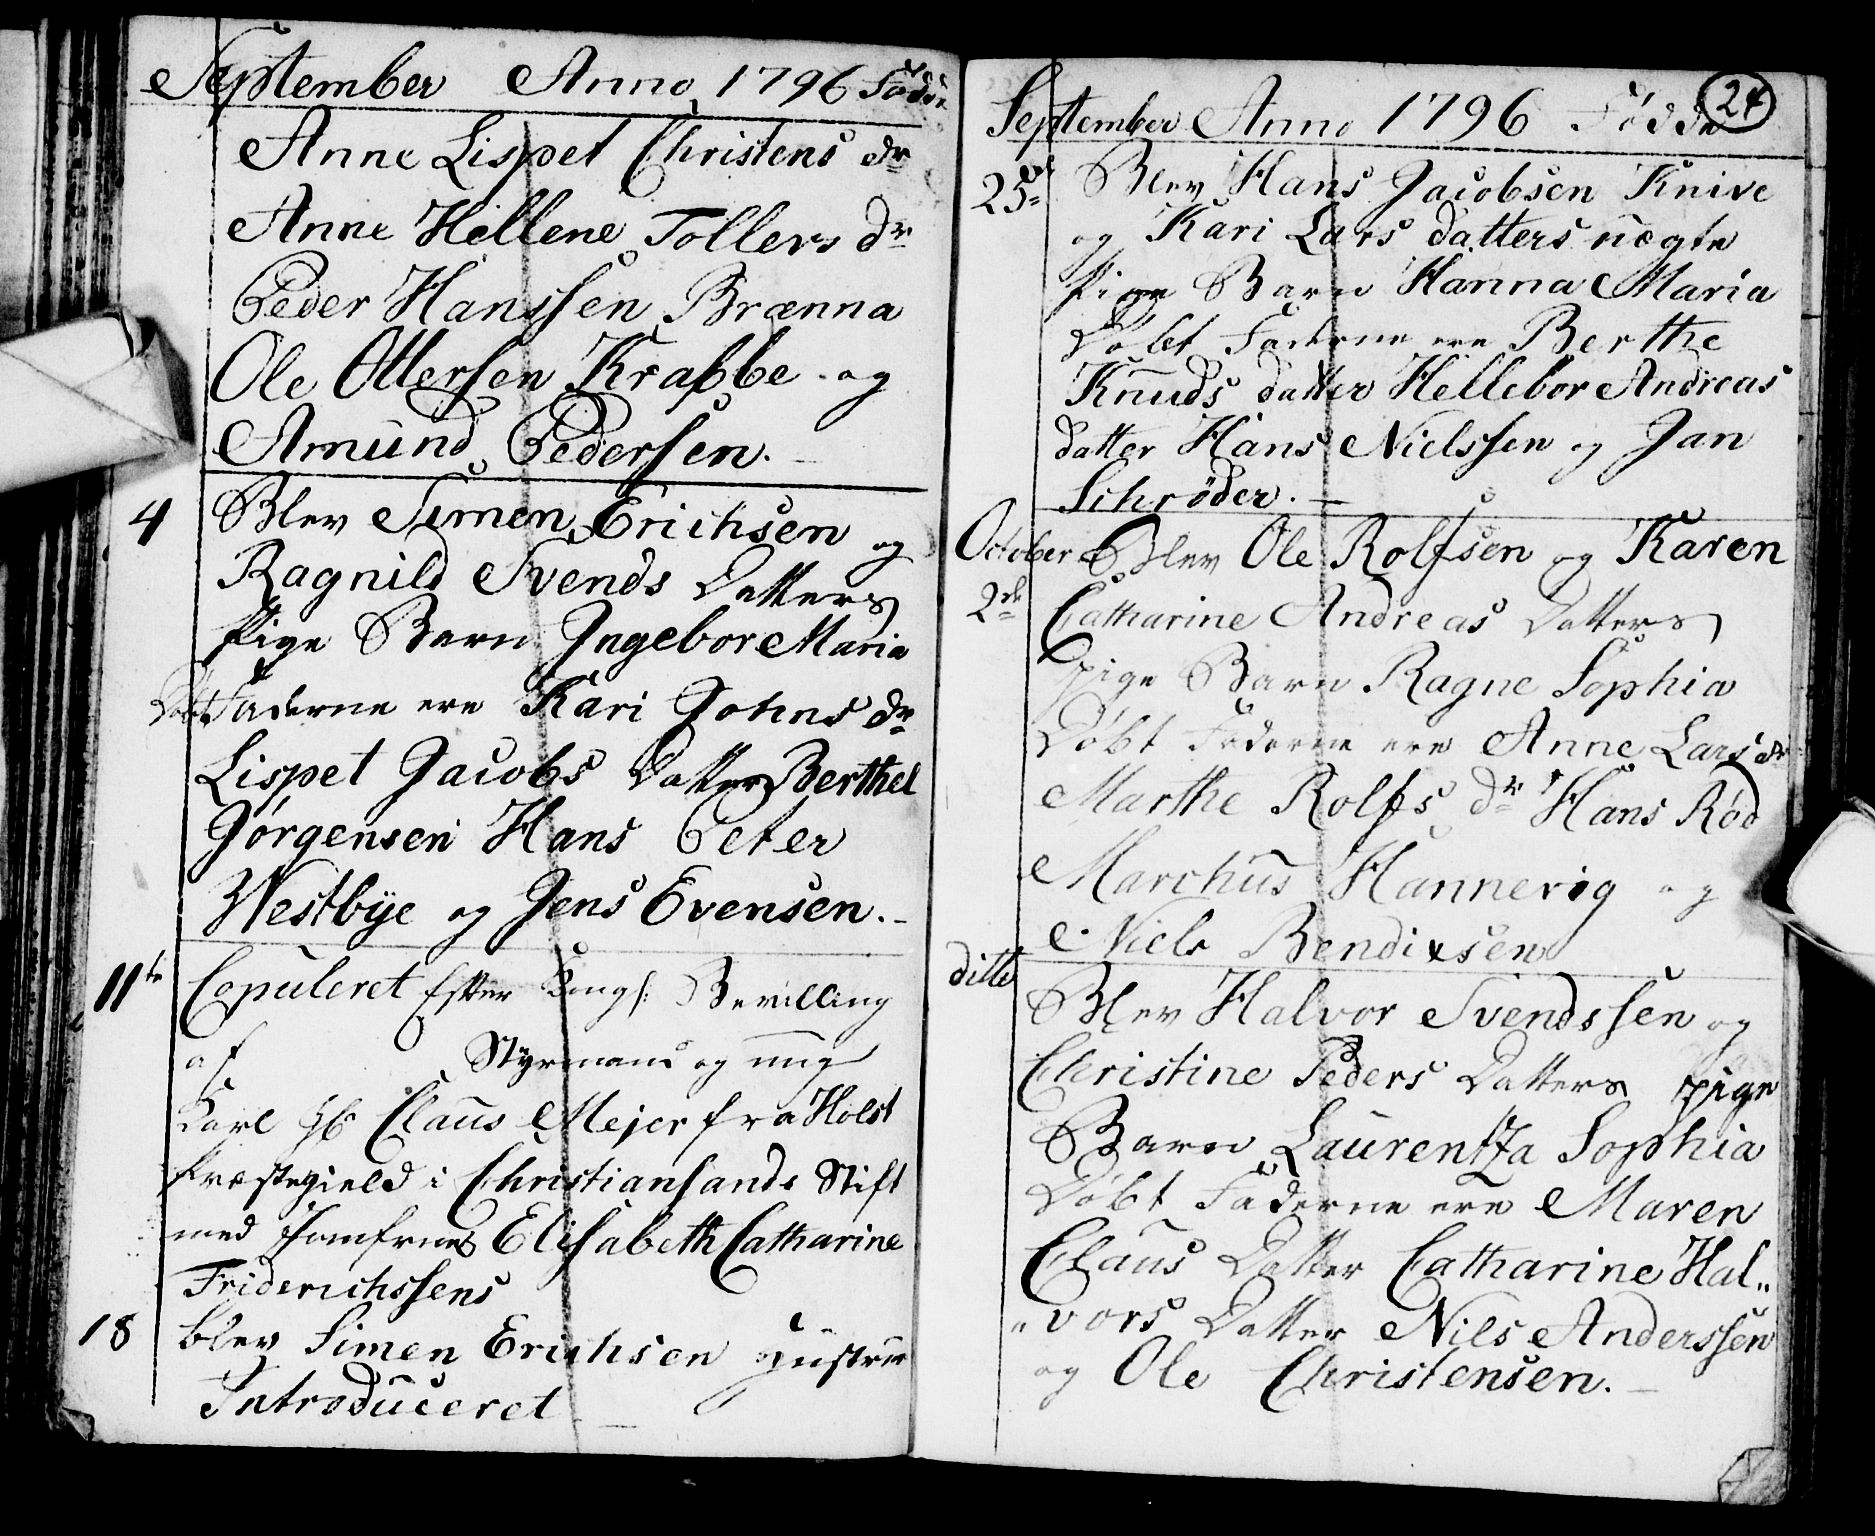 September Anno 1796 Fødde
Anne Lispet Christens dr
Anne Hellene Tollers dr
Peder Hanssen Brænna
Ole Ottersen Krabbe og
Amund Pedersen.
4 Blev Simen Erichsen og
Ragnild Svends Datters
Pige Barn Ingebor Maria
Døbt Faderne ere Kari Johns dr
Lispet Jacobs Datter Berthel
Jørgensen Hans Peter
Westbye og Jens Evensen.
11te Copuleret Efter Kongl: Bevilling
af Styrmand og ung
Karl Hr Claus Mejer fra Holst
Præstegield i Christiansands Stift
med Jomfrue Elisabeth Catharine
Friderichssens
18 blev Simen Erichsen Hustrue
Introduceret
24
September Anno 1796 Fødde
25de Blev Hans Jacobsen Knive
og Kari Lars datters uægte
Pige Barn Hanna Maria
Døbt Faderne ere Berthe
Knuds datter Hellebor Andreas
datter Hans Nielssen og Jan
Schrøder.
October Blev Ole Rolfsen og Karen
2de Catharine Andreas Datters
pige Barn Ragne Sophia
Døbt Faderne ere Anne Lars dr
Marthe Rolfs dr Hans Rød
Marchus Hannevig og
Niels Bendixsen
ditto Blev Halvor Svendssen og
Christine Peders Datters pige
Barn Laurentza Sophia
Døbt Faderne ere Maren
Claus Datter Catharine Hal„
„vors Datter Nils Anderssen
og Ole Christensen.